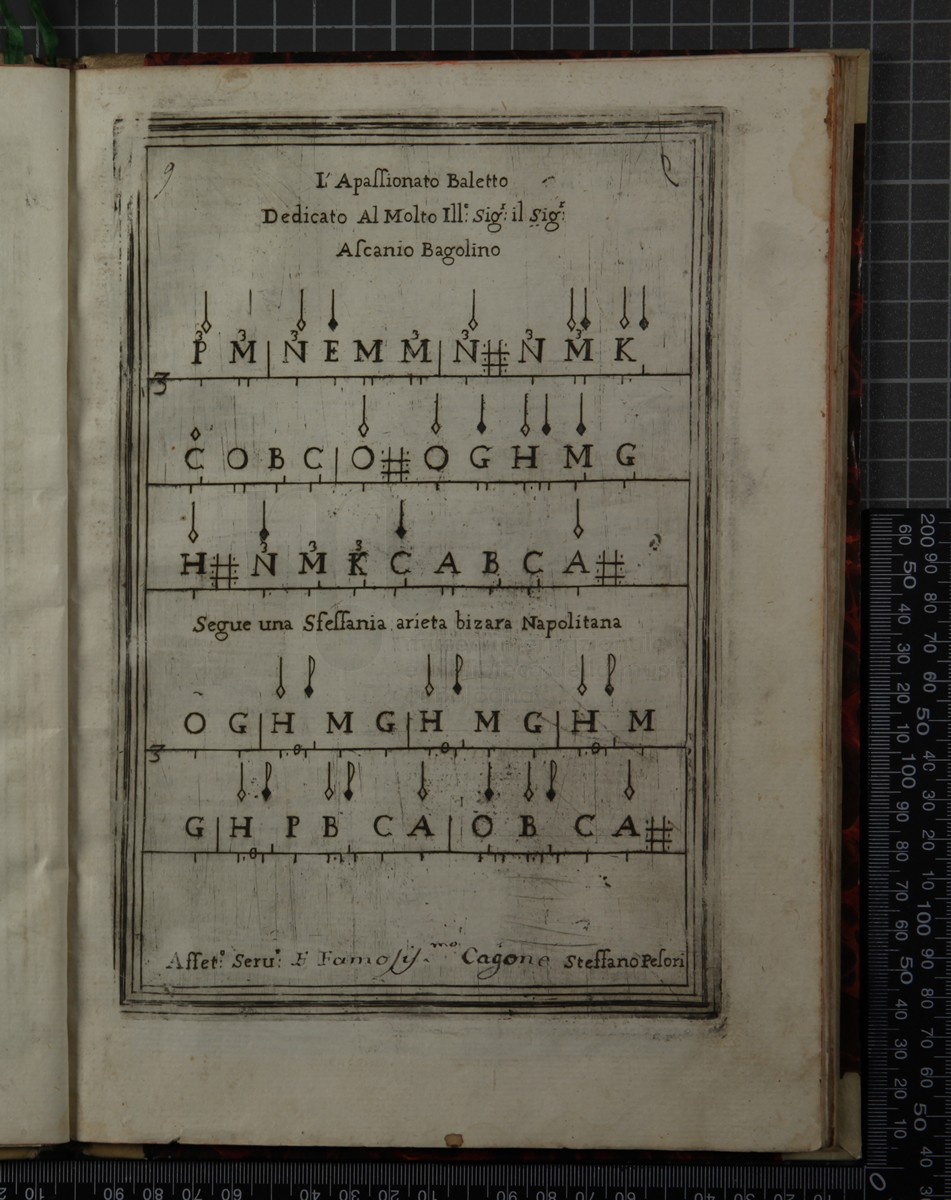 9
L'Apaſſionato Baletto
Dedicato Al Molto Ill:ᵉ Sig:ʳ il Sig:ʳ
Aſcanio Bagolino
3 3 3 3 3 3
P M | N E M M | N # N M K
3
C O B C | O # O G H M G
3 3 3
H # N M K C A B C A #
Segue una Sfeſſania arieta bizara Napolitana
O G | H M G | H M G | H M
3 0 0 0
G | H P B C A | O B C A #
0
Affet:ᵒ Seru:ᵉ E Famoſiſ.ᵐᵒ Cagone Steffano Peſori